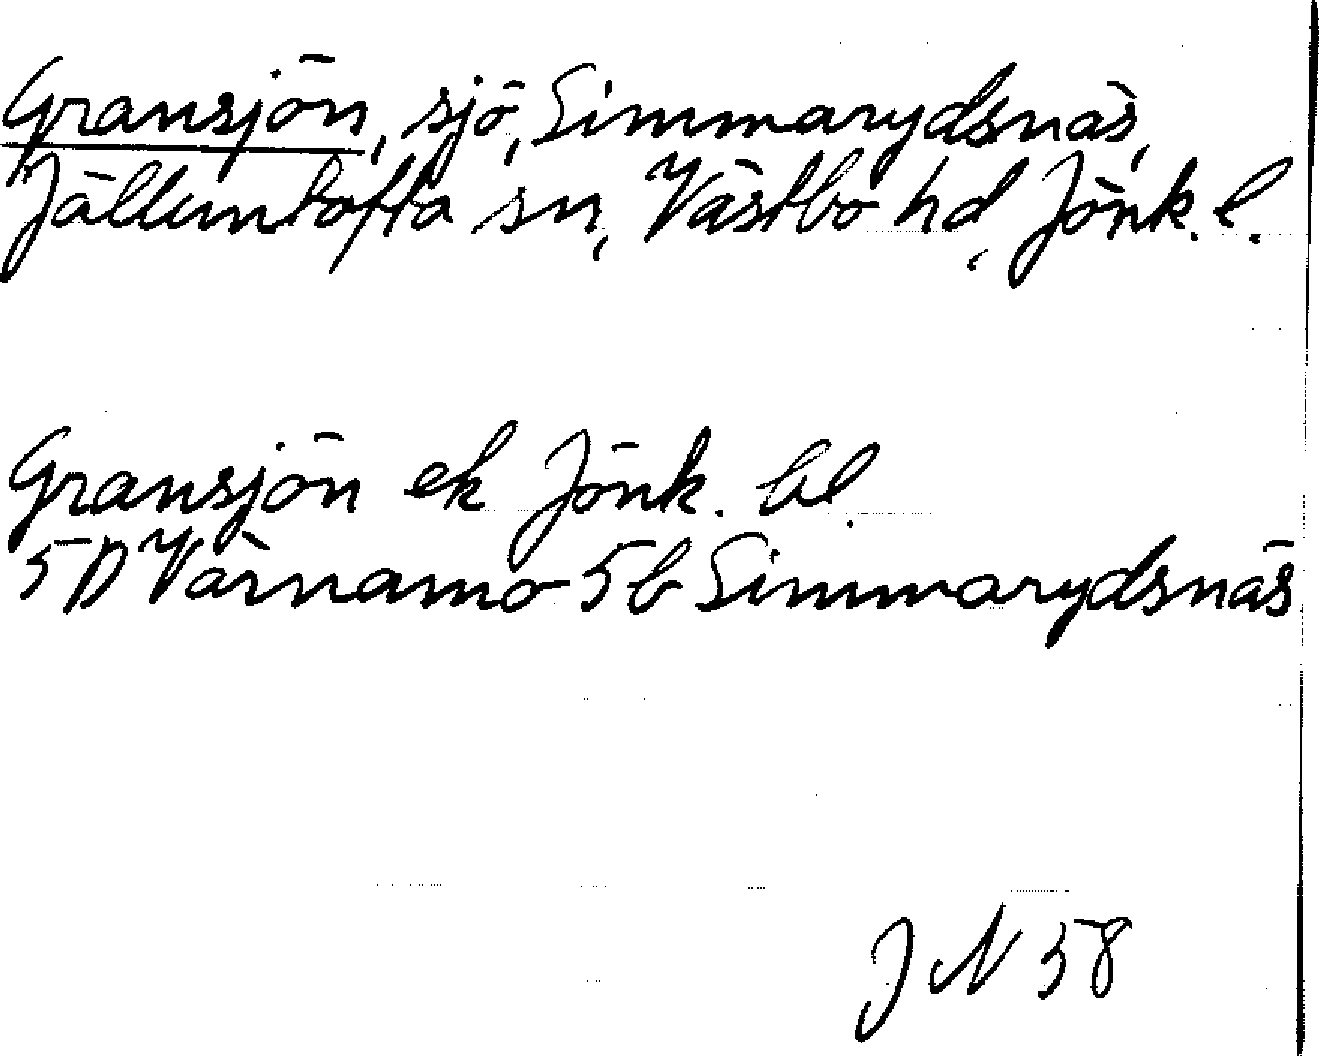 Gransjön, sjö, Simmarydsnäs,
Jälluntofta sn, Västbo hd, Jönk. l.
Gransjön ek Jönk. bl.
5D Värnamo 5b Simmarydsnäs
J N 58